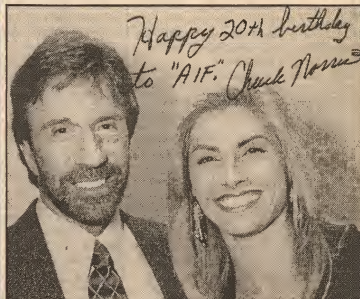 Happy 20th birthday
to "AIF." Chuck Norris